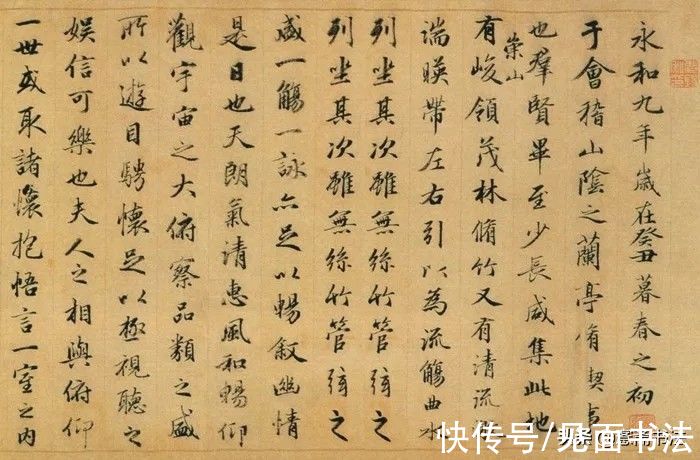 永和九年歲在癸丑暮春之初
于會稽山陰之蘭亭脩稧事
也羣賢畢至少長咸集此地
崇山
有峻領茂林脩竹又有清流
湍暎帶左右引以為流觴曲水
列坐其次雖無絲竹管弦之
列坐其次雖無絲竹管弦之
盛一觴一詠亦足以暢敘幽情
是日也天朗氣清惠風和暢仰
觀宇宙之大俯察品類之盛
所以遊目騁懷足以極視聽之
娛信可樂也夫人之相與俯仰
一世或取諸懷抱悟言一室之内
快传号/见面书法